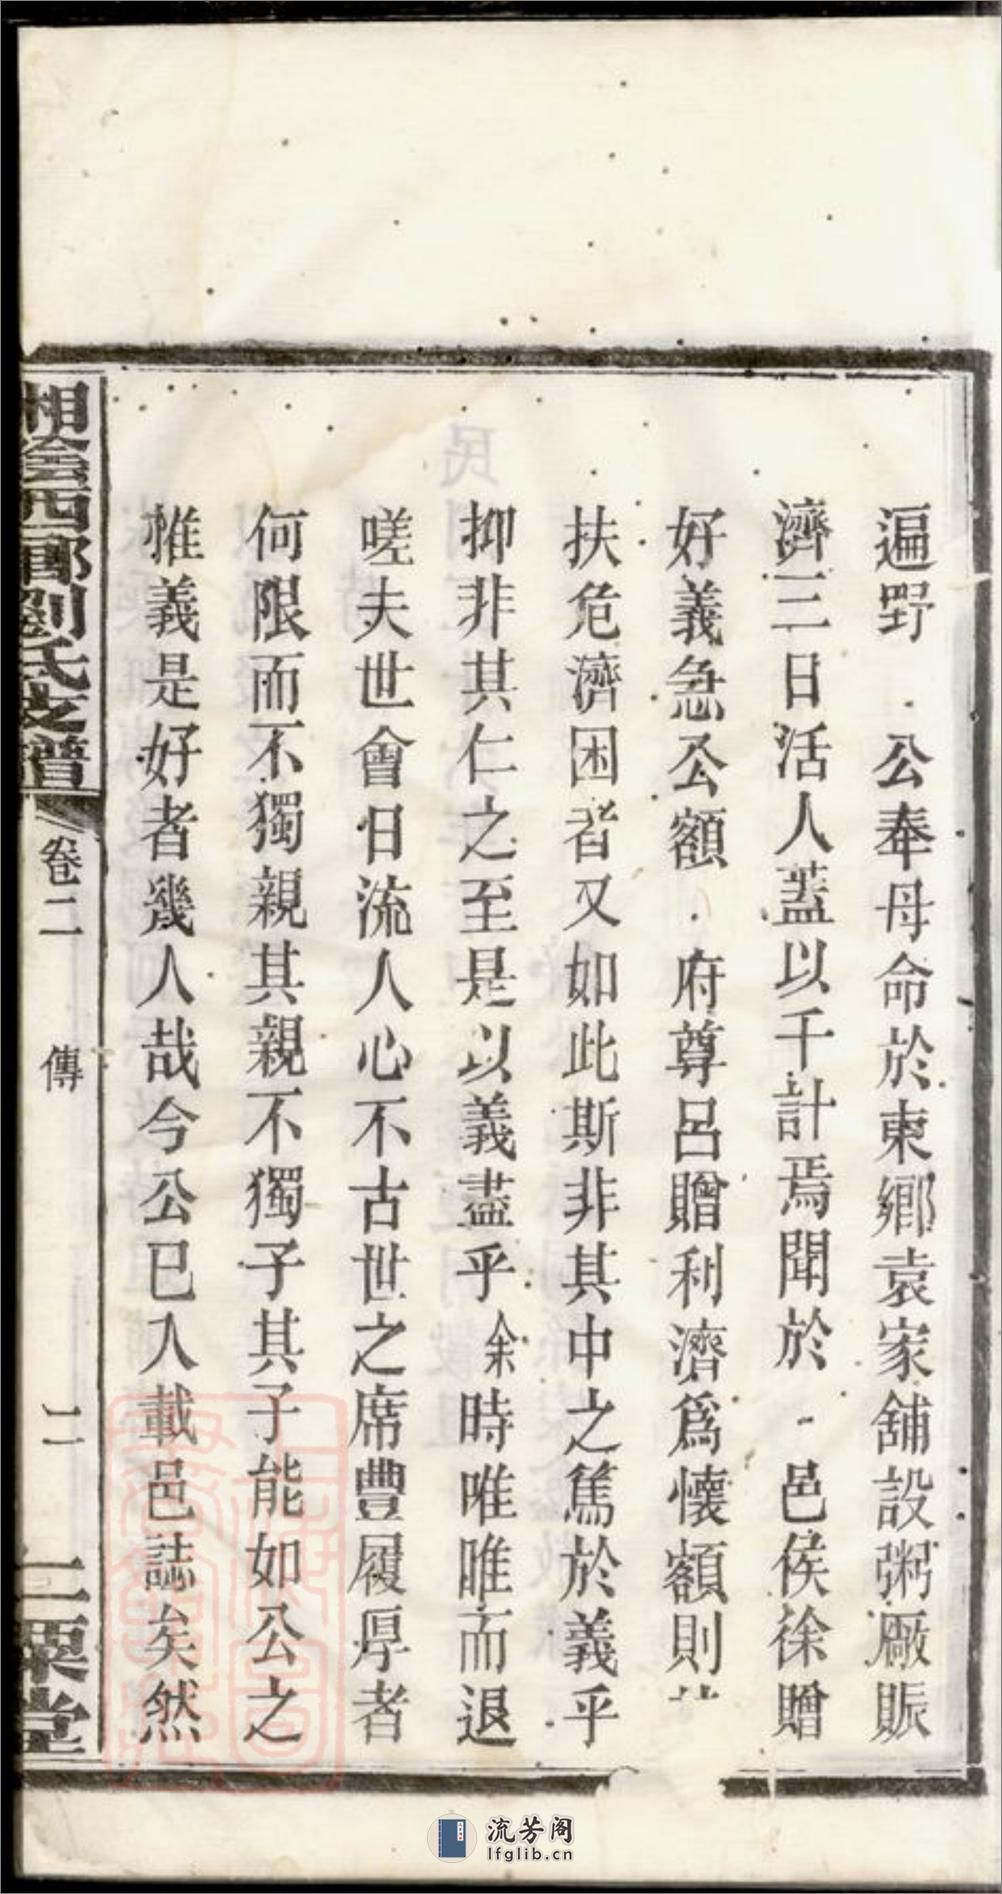 遍野　公奉母命於東鄉袁家舖設粥厰賑
濟三日活人蓋以千計焉聞於　邑侯徐贈
好義急公額　府尊呂贈利濟爲懷額則
扶危濟困者又如此斯非其中之篤於義乎
抑非其仁之至是以義盡乎余時唯唯而退
嗟夫世會日流人心不古世之席豐履厚者
何限而不獨親其親不獨子其子能如公之
惟義是好者幾人哉今公已入載邑誌矣然
湘陰西鄉劉氏支譜
卷二
傳
二
二粟堂
流芳阁
lfglib.cn